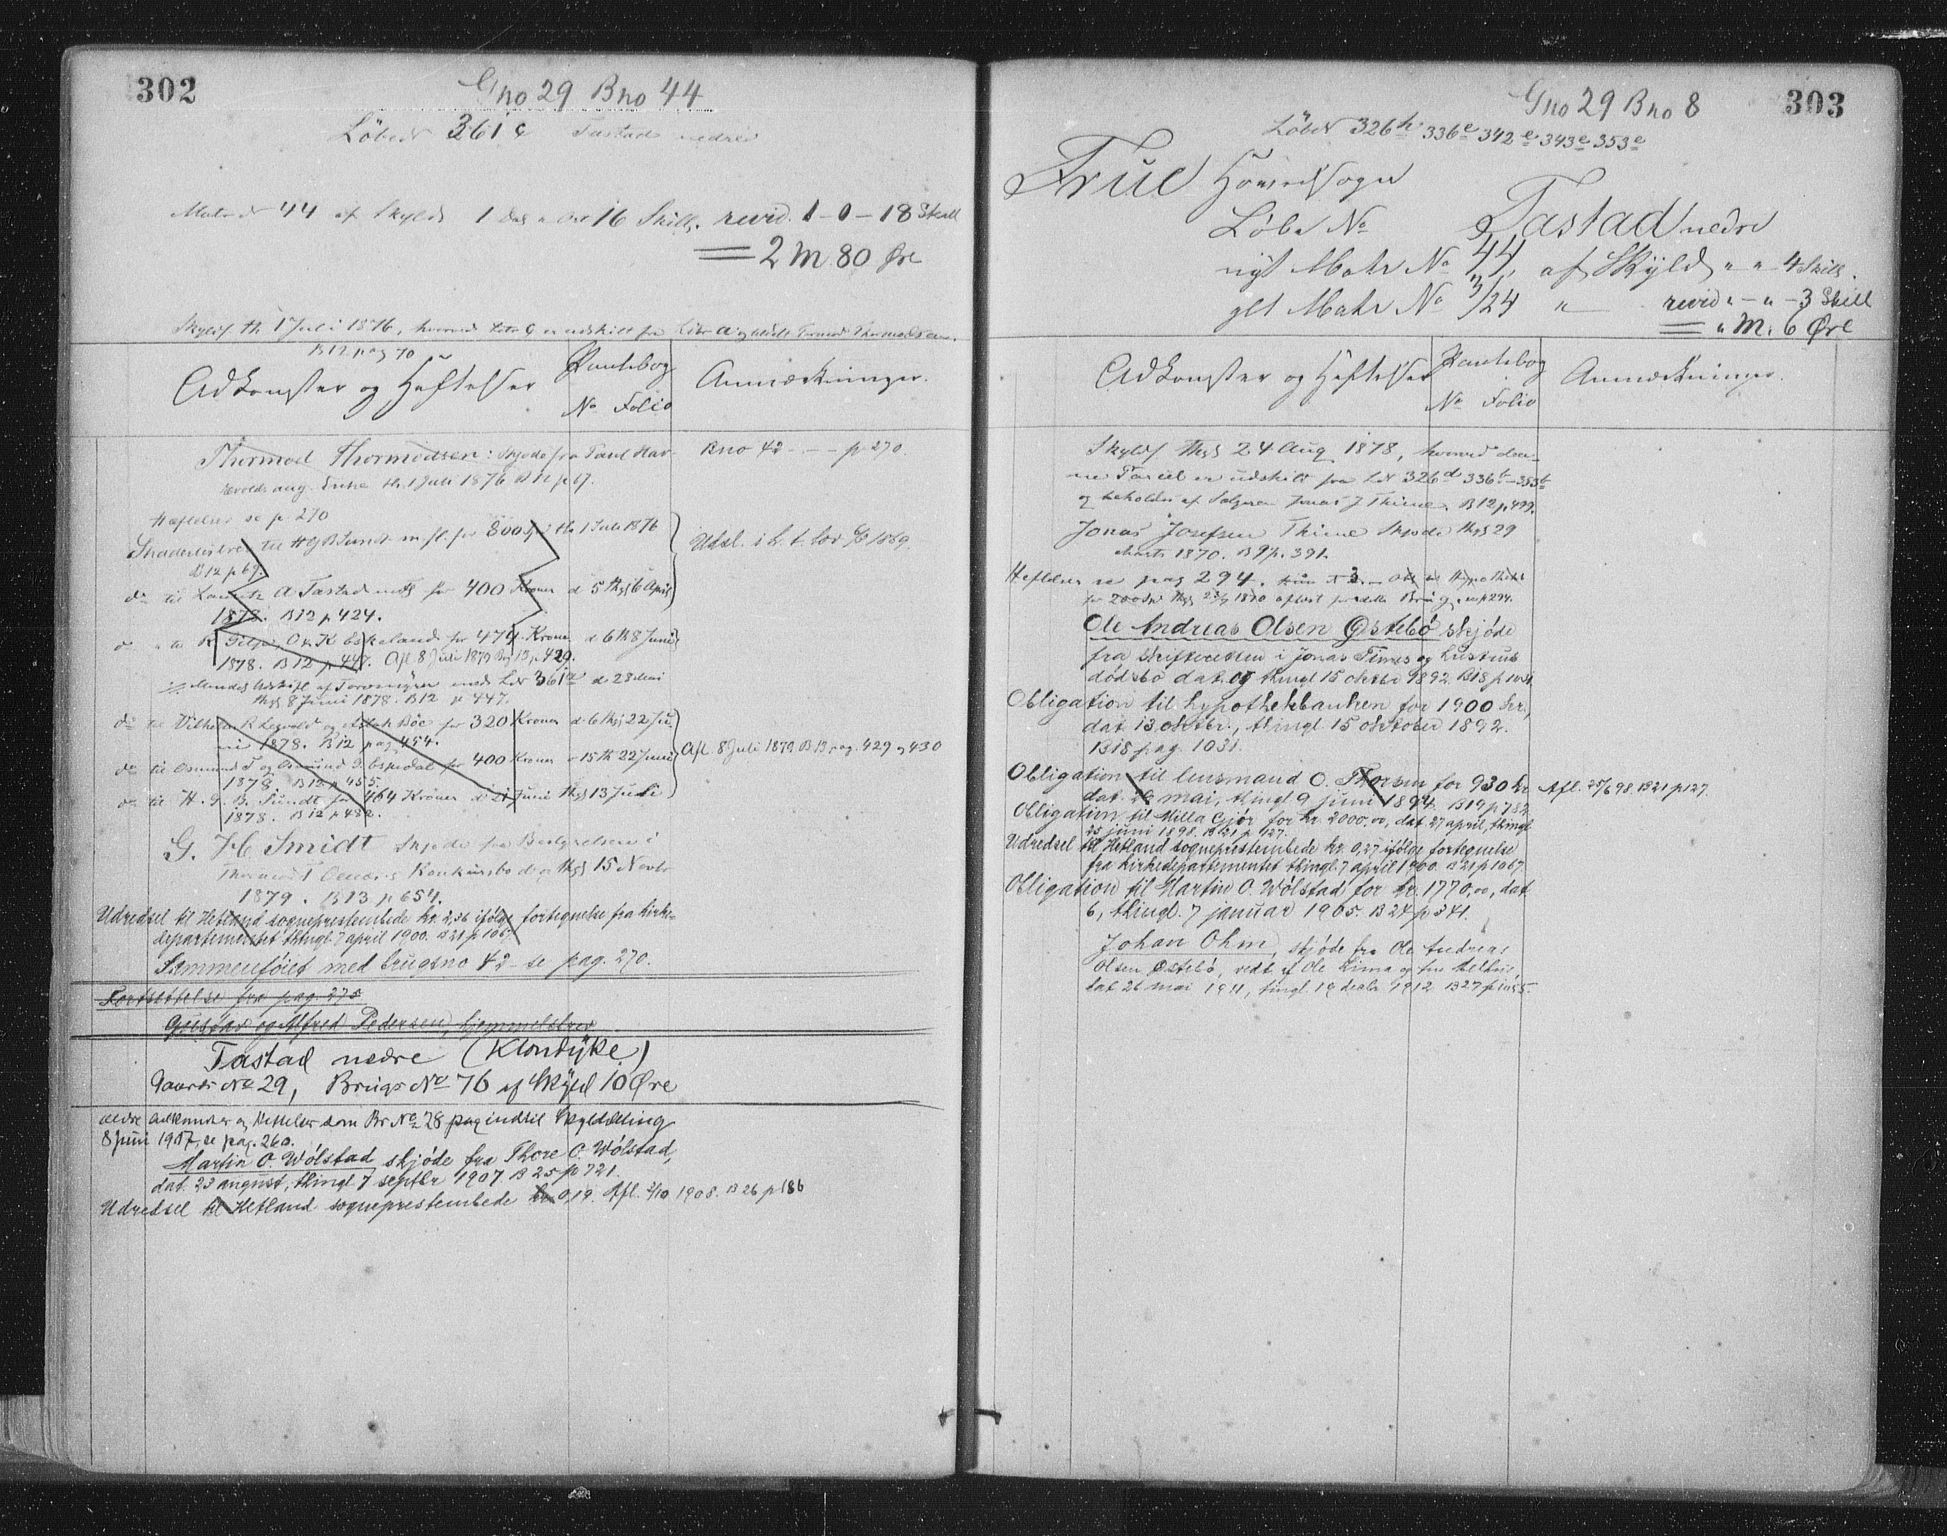 302
Gno 29 Bno 44
Løbe № 361 c Tastad nedre
Matr № 44 af Skyld 1 Dal " Ort 16 Skill. revid. 1-0-18 Skill
= 2 M 80 Øre
Skyldf th. 1 Juli 1876, hvorved Litr c er udskilt fra Litr a
B 12 pag 70
Adkomster og Hæftelser
Pantebog
№ Folio
Anmærkninger.
Thormod Thormodsen: Skjøde fra Paul
Enke th. 1 Juli 1876 B 12 p 67.
Bno 42 - - - p 270.
Hæftelser se p 270
Skadesløsbrev til H G B Sundt m fl. for 800 Spd th 1 Juli 1876
B 12 p 69.
Udsl. i h. t. lov
do til A Tastad for 400 Kroner d 5 thgl 6 April
1878. B 12 p 424.
do for 474 Kroner d 6 th 8 Juni
1878. B 12 p 447. Afl. 8 Juli 1879 B 13 p 429.
Mindel. Udskift. af Torvmyrer med L№ 361 a d 28 Mai
thgl 8 Juni 1878. B 12 p 447.
do til Vilhelm og Bøe for 320 Kroner d 6 thgl 22 Ju-
ni 1878. B 12 pag 454.
Afl. 8 Juli 1879 B 13 pag. 429 og 430
do til Osmund T og Osmund G. Espedal for 400 Kroner - 15 th 22 Juni
1878. B 12 p 455.
do til H. G. B. Sundt for 464 Kroner d 21 Juni thgl 13 Juli
1878. B 12 p 482.
G. H. Smidt Skjøde fra Bestyrelsen i
Konkursbo d og thgl 15 Novbr
1879. B 13 p 654.
Udredsel til Hetland sogneprestembede kr 2,56 ifølge fortegnelse fra kirke-
departementet thingl. 7 april 1900. B 21 p 1067.
Sammenføiet med brugsno 42 - se pag. 270.
Fortsættelse fra pag. 275
Gustav og Alfred Pedersen, hjemmelsbrev
Tastad nedre (Klondyke)
Gaards № 29, Brugs № 76 af Skyld 10 Øre
ældre adkomster og heftelser som Br № 28 pag indtil Skylddeling
8 juni 1907, se pag. 260.
Martin O. Wølstad skjøde fra Thore O. Wølstad,
dat. 23 august, thingl 7 septbr 1907 B 25 p 721.
Udredsel til Hetland sogneprestembede kr 0,19. Afl. 2/10 1908. B 26 p 186
303
Gno 29 Bno 8
Løbe № 326 h 336 e 342 e 343 e 353 e
Frue Hovedsogn
Løbe № Tastad nedre
nyt Matr № 44, af Skyld " " 4 Skill.
glt Matr № 3/24 " revid " - " - 3 Skill
= " M. 6 Øre
Adkomster og Hæftelser
Pantebog
№ Folio
Anmærkninger.
Skyldf thgl 24 Aug 1878, hvorved den-
ne Parcel er udskilt fra L№ 326 d 336 b - 353 b
og beholdes af Sælgeren Jonas J Thime. B 12 p. 499.
Jonas Josefsen Thime Skjøde thgl 29
Marts 1870. B 9 p. 391.
Heftelser se pag 294.
for 200 Spd thgl 1870 afløst for dette Brug, se p 294.
Ole Andreas Olsen Østebø skjøde
fra skifteretten i Jonas Times og hustrus
dødsbo dat. og thingl 15 oktbr 1892. B 18 p 1031.
Obligation til hypothekbanken for 1900 kr,
dat 13 oktbr., thingl 15 oktober 1892.
B 18 pag. 1031.
Obligation til lensmand O. Thorsen for 930 kr
Afl. 25/6 98. B 21 p 127.
dat. mai, thingl 9 juni 1894. B 19 p 752.
Obligation til Milla Gjør for kr 2000,00, dat 27 april, thingl
25 juni 1898. B 21 p 127.
Udredsel til Hetland sogneprestembede kr 0,27 ifølge fortegnelse
fra kirkedepartementet thingl. 7 april 1900. B 21 p 1067
Obligation til Martin O. Wølstad for kr. 1770,00, dat
6, thingl. 7 januar 1905. B 24 p 341.
Johan Ohm, skjøde fra Ole Andreas
Olsen Østebø, vedt. af Ole Lima og fru
dat 26 mai 1911, tingl. 14 1912 B 27 p 1055.